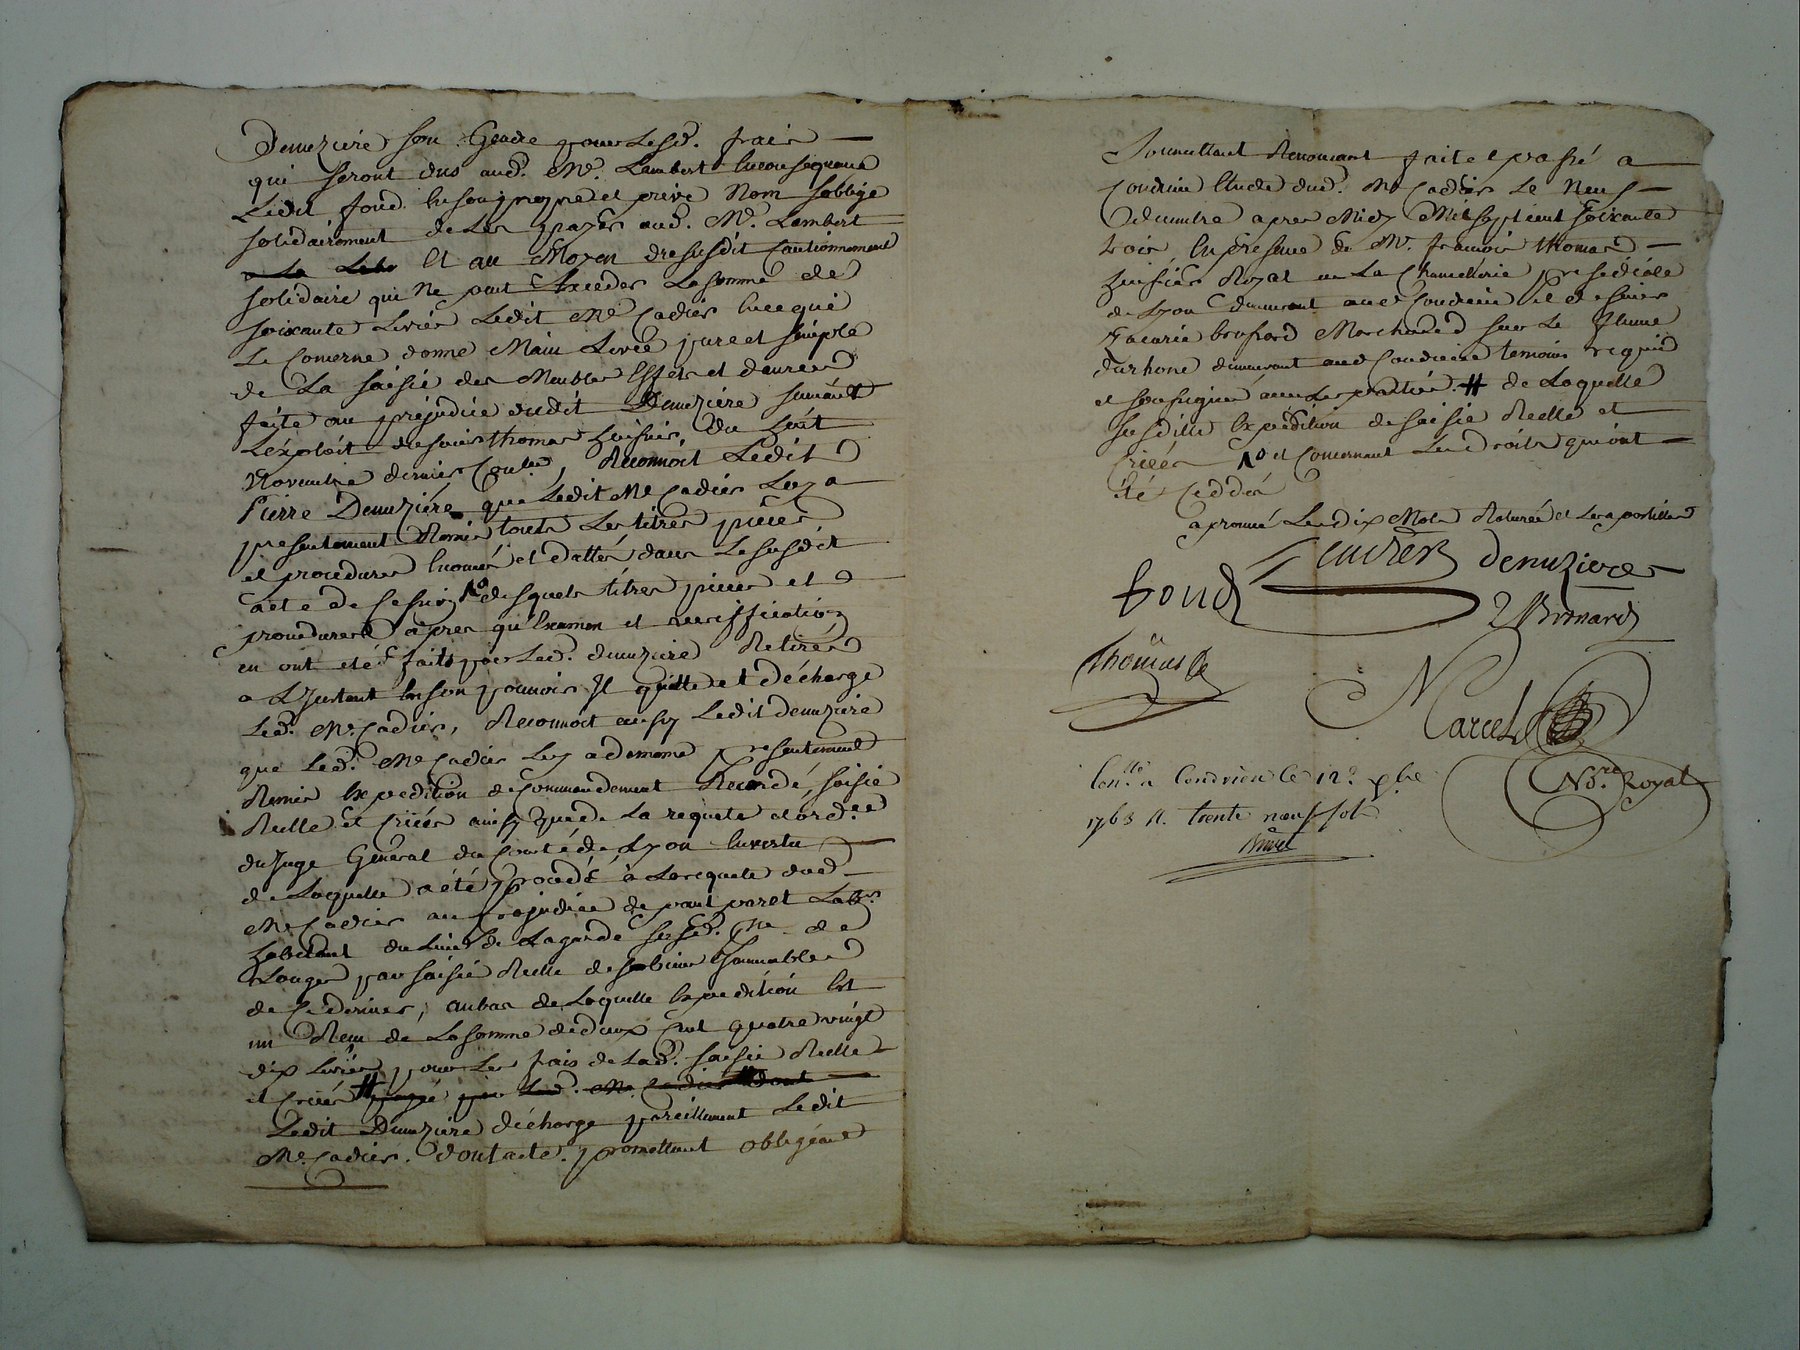 Demuziere son Gendre pour Lesd. frais
qui seront dus aud. Me. Lambert En consequence
Ledit fond En son propre et privé Nom soblige
solidairement de Les payer aud. Me. Lambert
Et au Moyen dususdit Cautionnement
solidaire qui Ne pout Exceder La somme de
soixante Livres Ledit Me Cadier En ce qui
Le Concerne donne Main Levée pure et simple
de La saisie des Meubles Effets et danrees
faite au préjudice dudit Demuziere suivant
L'exploit de sieur thomas huissier, du huit
Novembre dernier Conlle, Reconnoit Ledit
Pierre Demuziere que Ledit Me Cadier Luy a
presentement Remis touts Les titres pieces
et procedures Enoncés et dattés dans Le susdit
acte de Cession desquels titres pieces et
procedures apres qu'Examen et veriffication
en ont eté faits par Led. demuziere Retirés
a L'Instant En son pouvoir Il quitte et décharge
Led. Me. Cadier, Reconnoit aussy Ledit demuziere
que Led. Me Cadier Luy a de meme presentement
Remis Expedition de Commandement Recordé, saisie
Reelle et Criées ainsy que de La requete et ord.ce
du Juge Général du Comté de Lyon En vertu
de Laquelle a été procédé à La requete dud
Me Cadier au prejudice de paul paret Lab.r
habitant du Lieu de Lagarde susd. de
Longes par saisie Reelle de ses biens Immeubles
de Ce dernier, au bas de Laquelle Expedition Est
un Recu de La somme de deux Cent quatre vingt
dix Livres pour Les frais de Lad. saisie Reelle
et Criées # payé par Led. Me. Cadier # dont
Ledit Demuziere décharge pareillement Ledit
Me. Cadier. dont acte. promettant obligeant
Soumettant Renonçant fait et passé a
Condrieu Etude dud. Me Cadier Le Neuf
decembre apres Midy Mil sept cent soixante
trois En presence de Mr. francois thomas
huissier Royal en La Chancellerie presidiale
de Lyon demeurant aud Condrieu et de sieur
Marchand sur Le fleuve
du rhone demeurant aud Condrieu temoins requis
et soussignés avec Les parties # de Laquelle
susditte Expedition de saisie Reelle et
Criées et Concernant Les droits qui ont
été Ceddés
aprouvé Les dix Mots Raturés et Les apostilles
fond Cadier demuziere
Thomas
Marcel
Not.re Royal
Con.llé a Condrieu le 12e xbre
1763 R. trente neuf sols